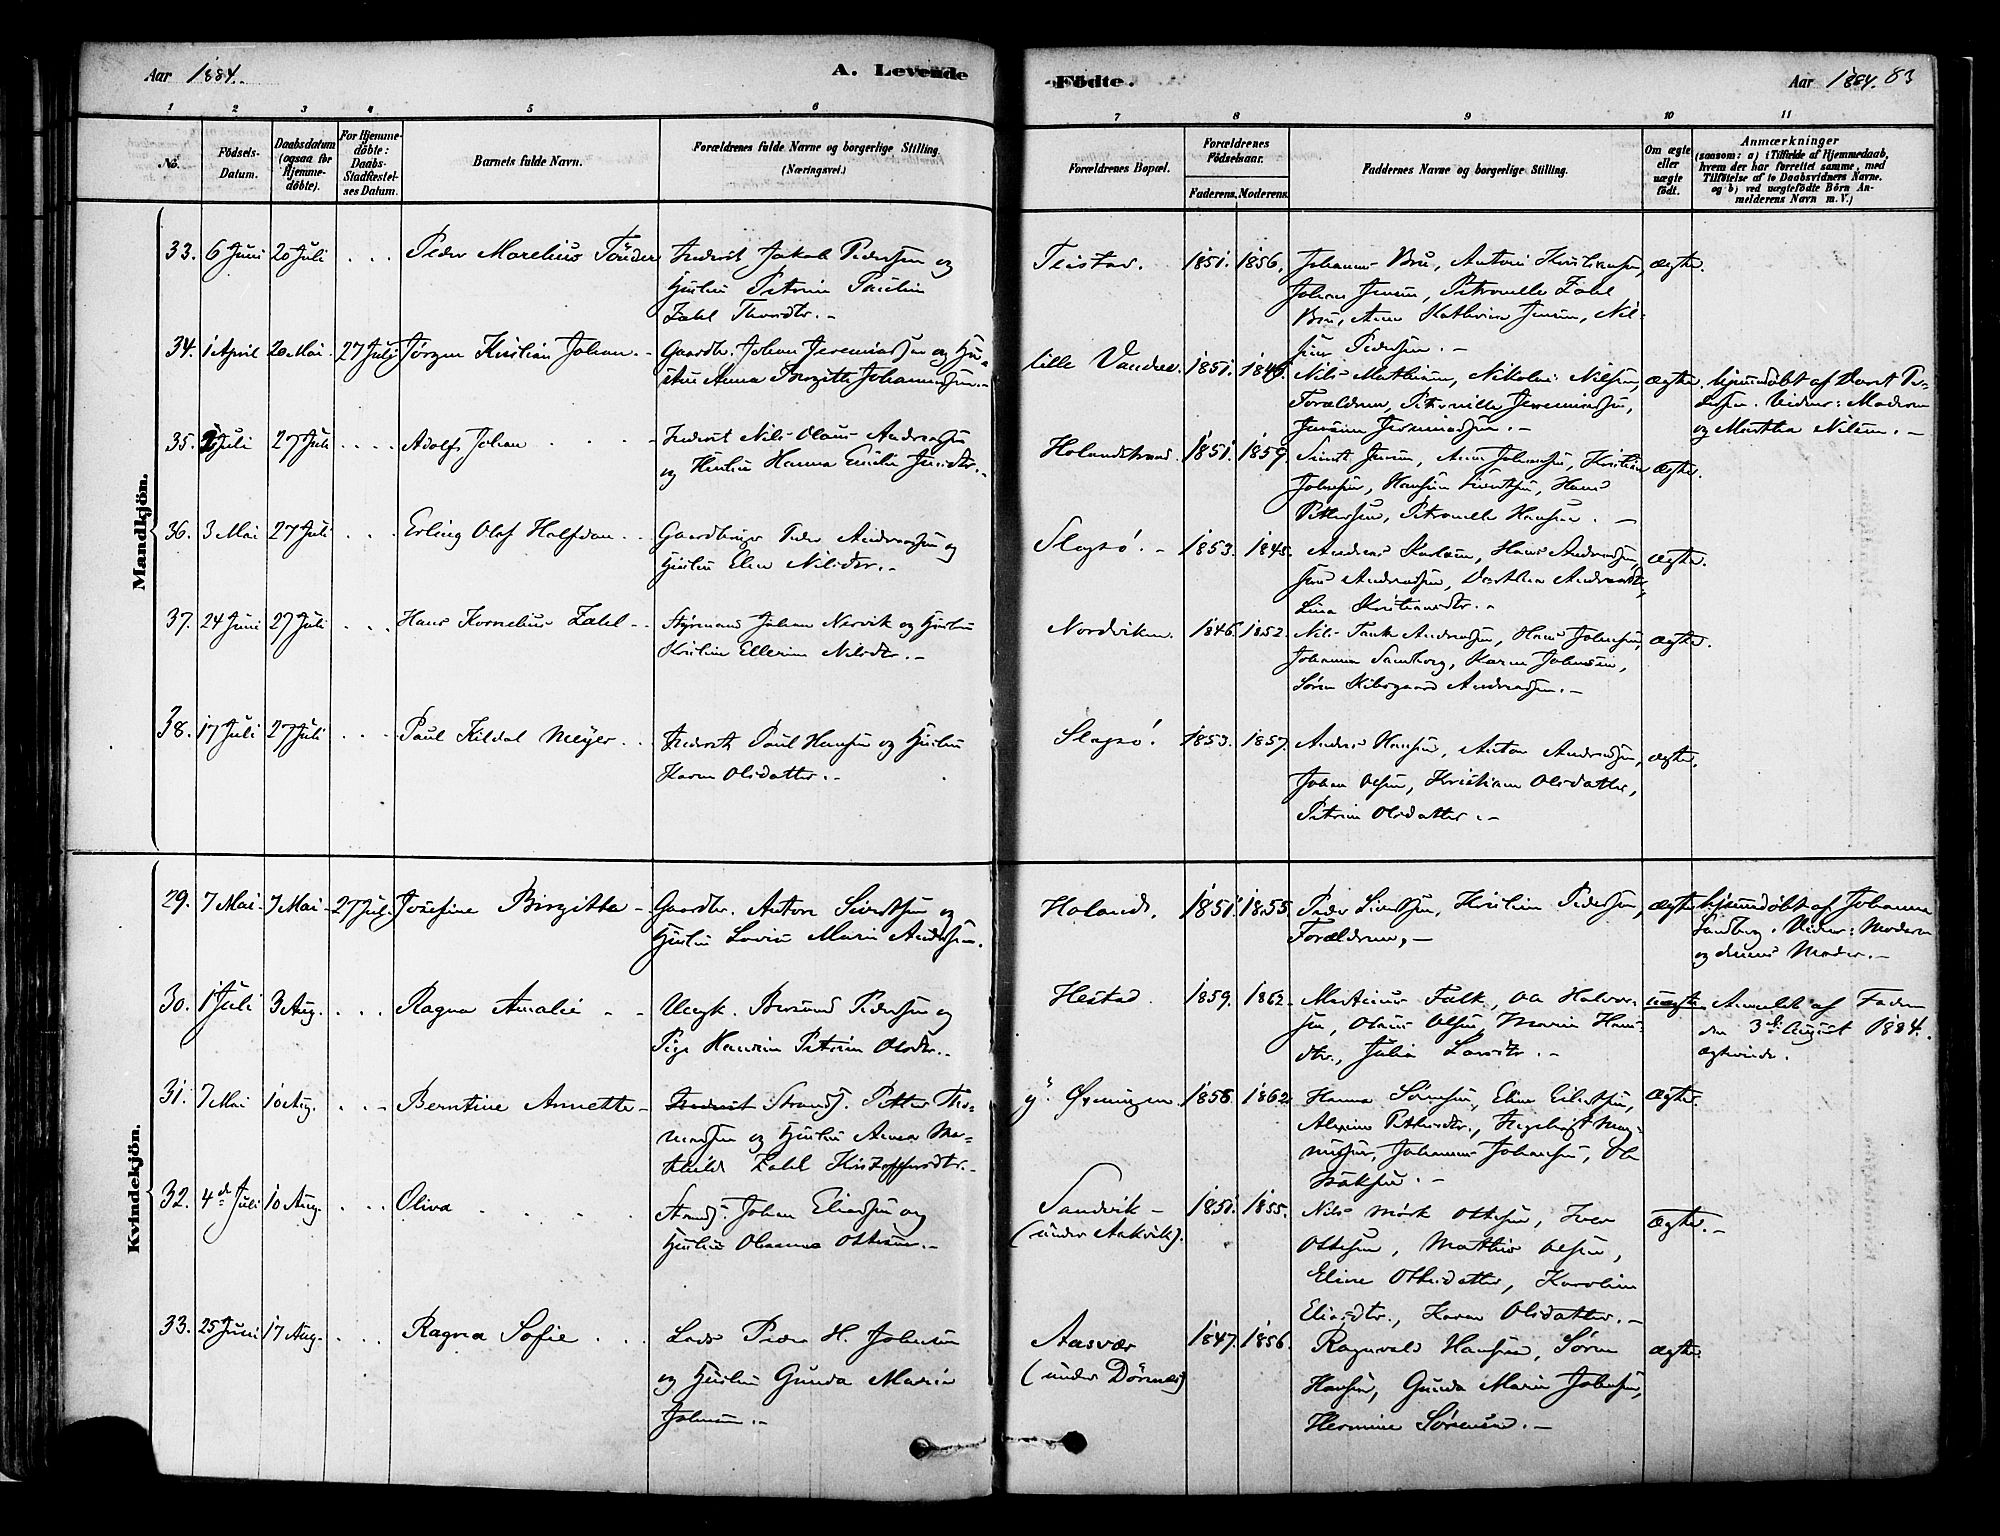 Aar 1884.
A. Levende
Födte.
Aar 1884. 83
1 2 3 4 5 6
7 8 9 10 11
No.
Födsels-
Datum.
Daabsdatum
(ogsaa for
Hjemme-
döbte).
For Hjemme-
döbte:
Daabs-
Stadfæstel-
ses Datum.
Barnets fulde Navn.
Forældrenes fulde Navne og borgerlige Stilling.
(Næringsvei.)
Forældrenes Bopæl.
Forældrenes
Födselsaar.
Faderens. Moderens.
Faddernes Navne og borgerlige Stilling.
Om ægte
eller
uægte
födt.
Anmærkninger
(saasom: a) i Tilfælde af Hjemmedaab,
hvem der har forrettet samme, med
Tilföielse af to Daabsvidners Navne,
og b) ved uægtefödte Börn An-
melderens Navn m. V.)
Mandkjön.
33. 6 Juni 20 Juli Peder Marelius Tönder
Inderst Jakob Pedersen og
Hustru Petrine Pauline
Zahl Thordtr.
Teistad. 1851. 1856.
Johannes Bru, Antoni Kristiansen,
Johan Jensen, Petronelle Zahl
Bru, Ane Kathrine Jensen, Nil-
Pedersen.
ægte.
34. 1 April 20 Mai 27 Juli Jörgen Kristian Johan
Gaardbr. Johan Jeremiassen og Hu-
stru Anna Birgitte Johannessen.
lille Vandve. 1851. 1845.
Nils Mathisen, Nikolai Nilsen,
Forældrene, Petronille Jeremiassen,
Jeremiassen.
ægte.
hjemmedøbt af Pe-
dersen. Vidner: Moderen
og Martha Nilsen.
35. Juli 27 Juli Adolf Johan
Inderst Nils Olaus Andreassen
og Hustru Hanna Emilie
Holandstrand 1851. 1859.
Sivert Jensen, Ane Johnsen, Kristian
Johnsen, Hansine Sivertsen, Hans
Pettersen, Petronelle Hansen.
Ægte.
36. 3 Mai 27 Juli Erling Olaf Halfdan
Gaardbruger Peder Andreassen og
Hustru Elen Nilsdtr.
Slapsö. 1853. 1845.
Andreas Karlsen, Hans Andreassen,
Andreassen, Dorthea Andreasdtr,
Lina Kristiansdtr.
ægte.
37. 24 Juni 27 Juli Hans Kornelius Zahl
Styrmand Johan Nervik og Hustru
Kristine Ellerine Nilsdtr.
Nordviken. 1846. 1852.
Nils Tank Andreassen, Hans Johnsen,
Johanna Sandberg, Karen Johnsen,
Sören Kilsgaard Andreassen.
ægte.
38. 17 Juli 27 Juli Paul Kildal Meyer
Inderst Paul Hansen og Hustru
Karen Olsdatter.
Slapsö. 1853. 1857.
Anders Hansen, Anton Andreassen,
Johan Olsen, Kristiane Olsdatter,
Petrine Olsdatter.
ægte.
Kvindekjön.
29. 7 Mai. 7 Mai 27 Juli Josefine Birgitta
Gaardbr. Anton Sivertsen og
Hustru Lovise Marie Andersen.
Holand. 1851. 1855.
Peder Sivertsen, Kristine Pedersen,
Forældrene,
ægte
hjemmedøbt af Johanna
Sandberg. Vidner: Moderen
og dennes Moder.
30. 1 Juli 3 Aug. Ragna Amalie
Ungk. Bersvend Pedersen og
Pige Hansine Petrine Olsdtr.
Heistad. 1859. 1862.
Martinus Falk, Ole Halvor-
sen, Olaus Olsen, Maria Hans-
dtr., Julia Larsdtr.
uægte
Anmeldt af Faderen
den 3die August 1884.
31. 7 Mai 10 Aug. Berntine Annette
Inderst Strands. Petter Tho-
massen og Hustru Anna Ma-
thilde Zahl Kristoffersdtr.
y. Øxningen. 1858 1862
Hanna Sörensen, Eline Eilertsen,
Alexine Pettersdtr., Ingebrigt Mag-
nussen, Johannes Johansen, Ole
Isaksen.
Ægte.
32. 4de Juli 10 Aug. Oliva
Strands. Johan Eliassen og
Hustru Oleanna Ottesen.
Sandvik
(under Aakvik). 1851. 1855.
Nils Mørk Ottesen, Iver
Ottesen, Mathias Olsen,
Eline Ottesdatter, Karoline
Eliasdtr., Karen Olsdatter.
Ægte.
33. 25 Juni 17 Aug. Ragna Sofie
Lods Peder H. Johnsen
og Hustru Gunda Marie
Johnsen.
Aasvær
(under Dönnes) 1847. 1856.
Ragnvald Hansen, Sören
Hansen, Gunda Marie Johnsen,
Hermine Sörensen.
ægte.